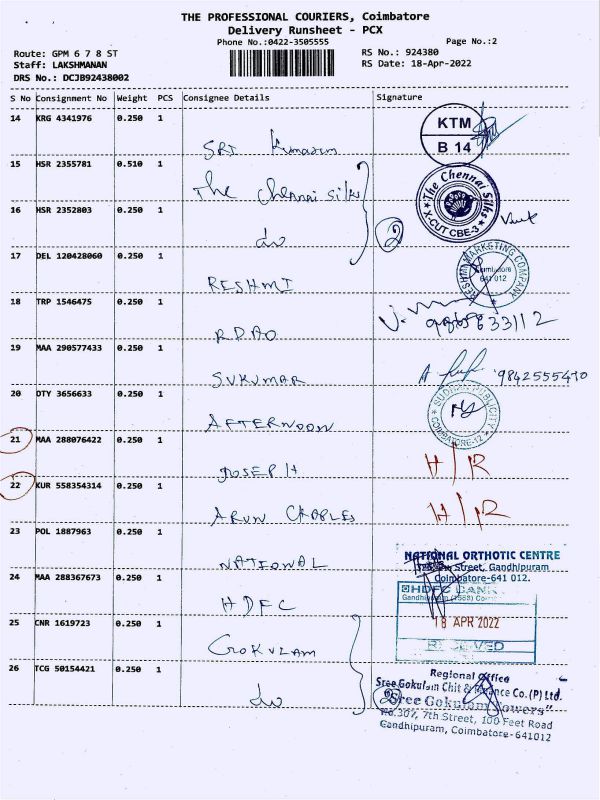 THE PROFESSIONAL COURIERS, Coimbatore
Delivery Runsheet - PCX
Phone No.:0422-3505555
Page No.:2
Route: GPM 6 7 8 ST
RS No.: 924380
Staff: LAKSHMANAN
RS Date: 18-Apr-2022
DRS No.: DCJB92438002
S No Consignment No Weight PCS Consignee Details Signature
14 KRG 4341976 0.250 1
SRI Kumaran
KTM
B 14
15 HSR 2355781 0.510 1
The Chennai Silks
The Chennai Silks
X-CUT CBE-3
16 HSR 2352803 0.250 1
do
2
17 DEL 120428060 0.250 1
RESHMI
RESHMI MARKETING COMPANY
Coimbatore
641 012
18 TRP 1546475 0.250 1
RDAO
9865833112
19 MAA 290577433 0.250 1
SUKUMAR
9842555410
20 OTY 3656633 0.250 1
AFTERNOON
PUBLICITY
COIMBATORE-12
21 MAA 288076422 0.250 1
JOSEPH
H/R
22 KUR 558354314 0.250 1
ARUN CHARLES
H/R
23 POL 1887963 0.250 1
NATIONAL
NATIONAL ORTHOTIC CENTRE
Street, Gandhipuram
Coimbatore-641 012.
24 MAA 288367673 0.250 1
HDFC
HDFC BANK
18 APR 2022
RECEIVED
25 CNR 1619723 0.250 1
GOKULAM
26 TCG 50154421 0.250 1
do
2
Regional Office
Sree Gokulam Chit & Finance Co.(P) Ltd.
"Sree Gokulam Towers"
No.307, 7th Street, 100 Feet Road
Gandhipuram, Coimbatore-641012